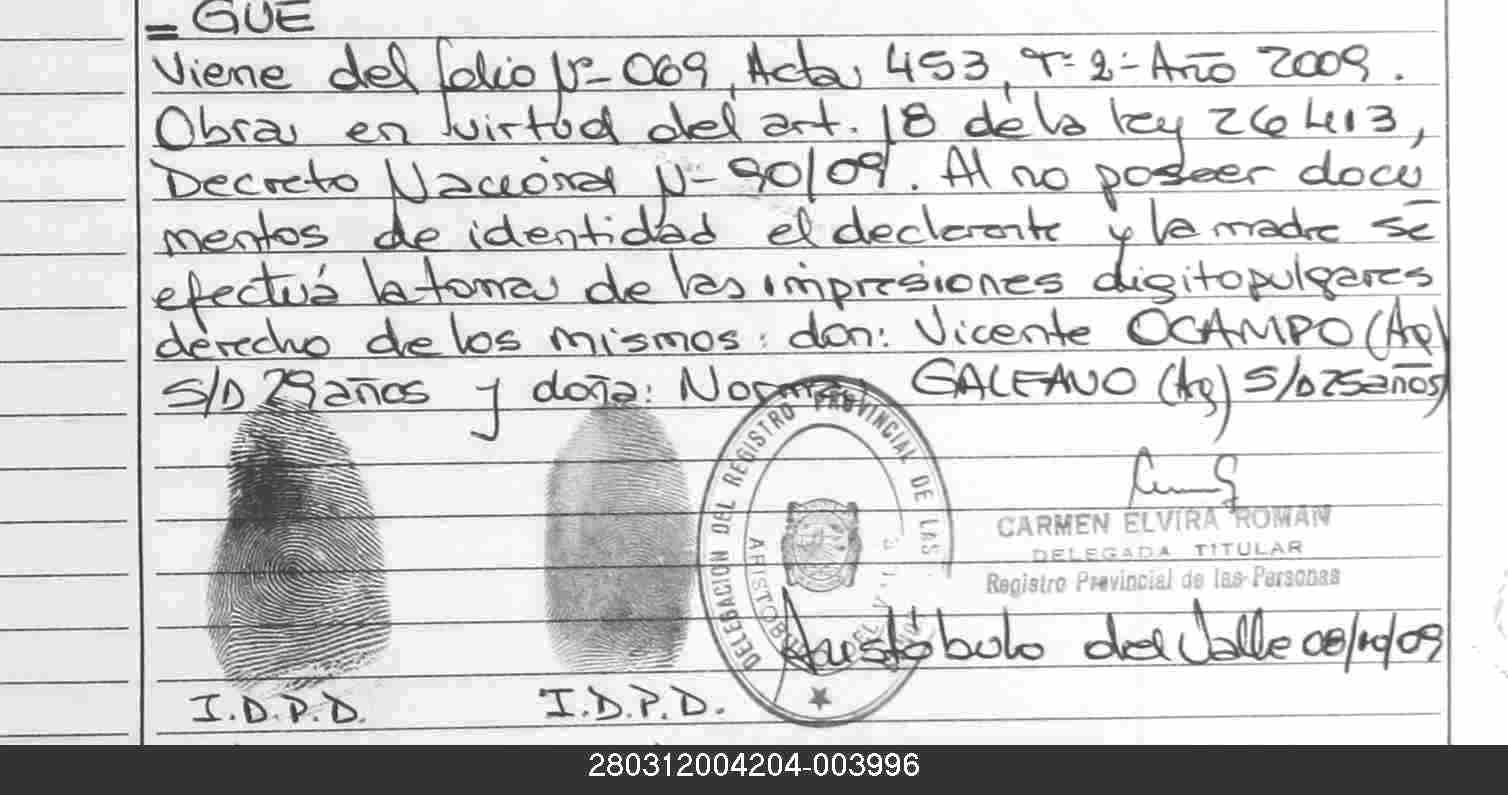 = GUE
Viene del folio Nº 069, Acta 453, Tº 2º Año 2009.
Obra en virtud del art. 18 de la ley 26413,
Decreto Nacional Nº 90/09. Al no poseer docu
mentos de identidad el declarante y la madre se
efectuá la toma de las impresiones digitopulgares
derecho de los mismos: don: Vicente OCAMPO (Aq)
S/D 29 años y doña: Norma GALEANO (Aq) S/D 25 años
DELEGACION DEL REGISTRO PROVINCIAL DE LAS
CARMEN ELVIRA ROMAN
DELEGADA TITULAR
Registro Provincial de las Personas
Aristóbulo del Valle 08/10/09
I.D.P.D. I.D.P.D.
280312004204-003996